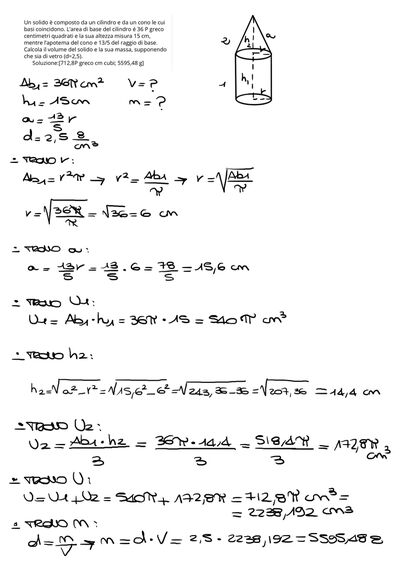 Un solido è composto da un cilindro e da un cono le cui
basi coincidono. L'area di base del cilindro è 36 P greco
centimetri quadrati e la sua altezza misura 15 cm,
mentre l'apotema del cono e 13/5 del raggio di base.
Calcola il volume del solido e la sua massa, supponendo
che sia di vetro (d=2,5).
Soluzione:[712,8P greco cm cubi; 5595,48 g]
2 a
h2
r
1 h1
r
Ab1 = 36π cm² V = ?
h1 = 15 cm m = ?
a = 13/5 r
d = 2,5 g/cm³
- TROVO r:
Ab1 = r²π → r² = Ab1/π → r = √(Ab1/π)
r = √(36π/π) = √36 = 6 cm
- TROVO a:
a = 13/5 r = 13/5 · 6 = 78/5 = 15,6 cm
· TROVO V1:
V1 = Ab1 · h1 = 36π · 15 = 540π cm³
· TROVO h2:
h2 = √(a² - r²) = √(15,6² - 6²) = √(243,36 - 36) = √207,36 = 14,4 cm
· TROVO V2:
V2 = Ab1 · h2/3 = 36π · 14,4/3 = 518,4π/3 = 172,8π cm³
· TROVO V:
V = V1 + V2 = 540π + 172,8π = 712,8π cm³ =
= 2238,192 cm3
· TROVO m:
d = m/V → m = d · V = 2,5 · 2238,192 = 5595,48 g